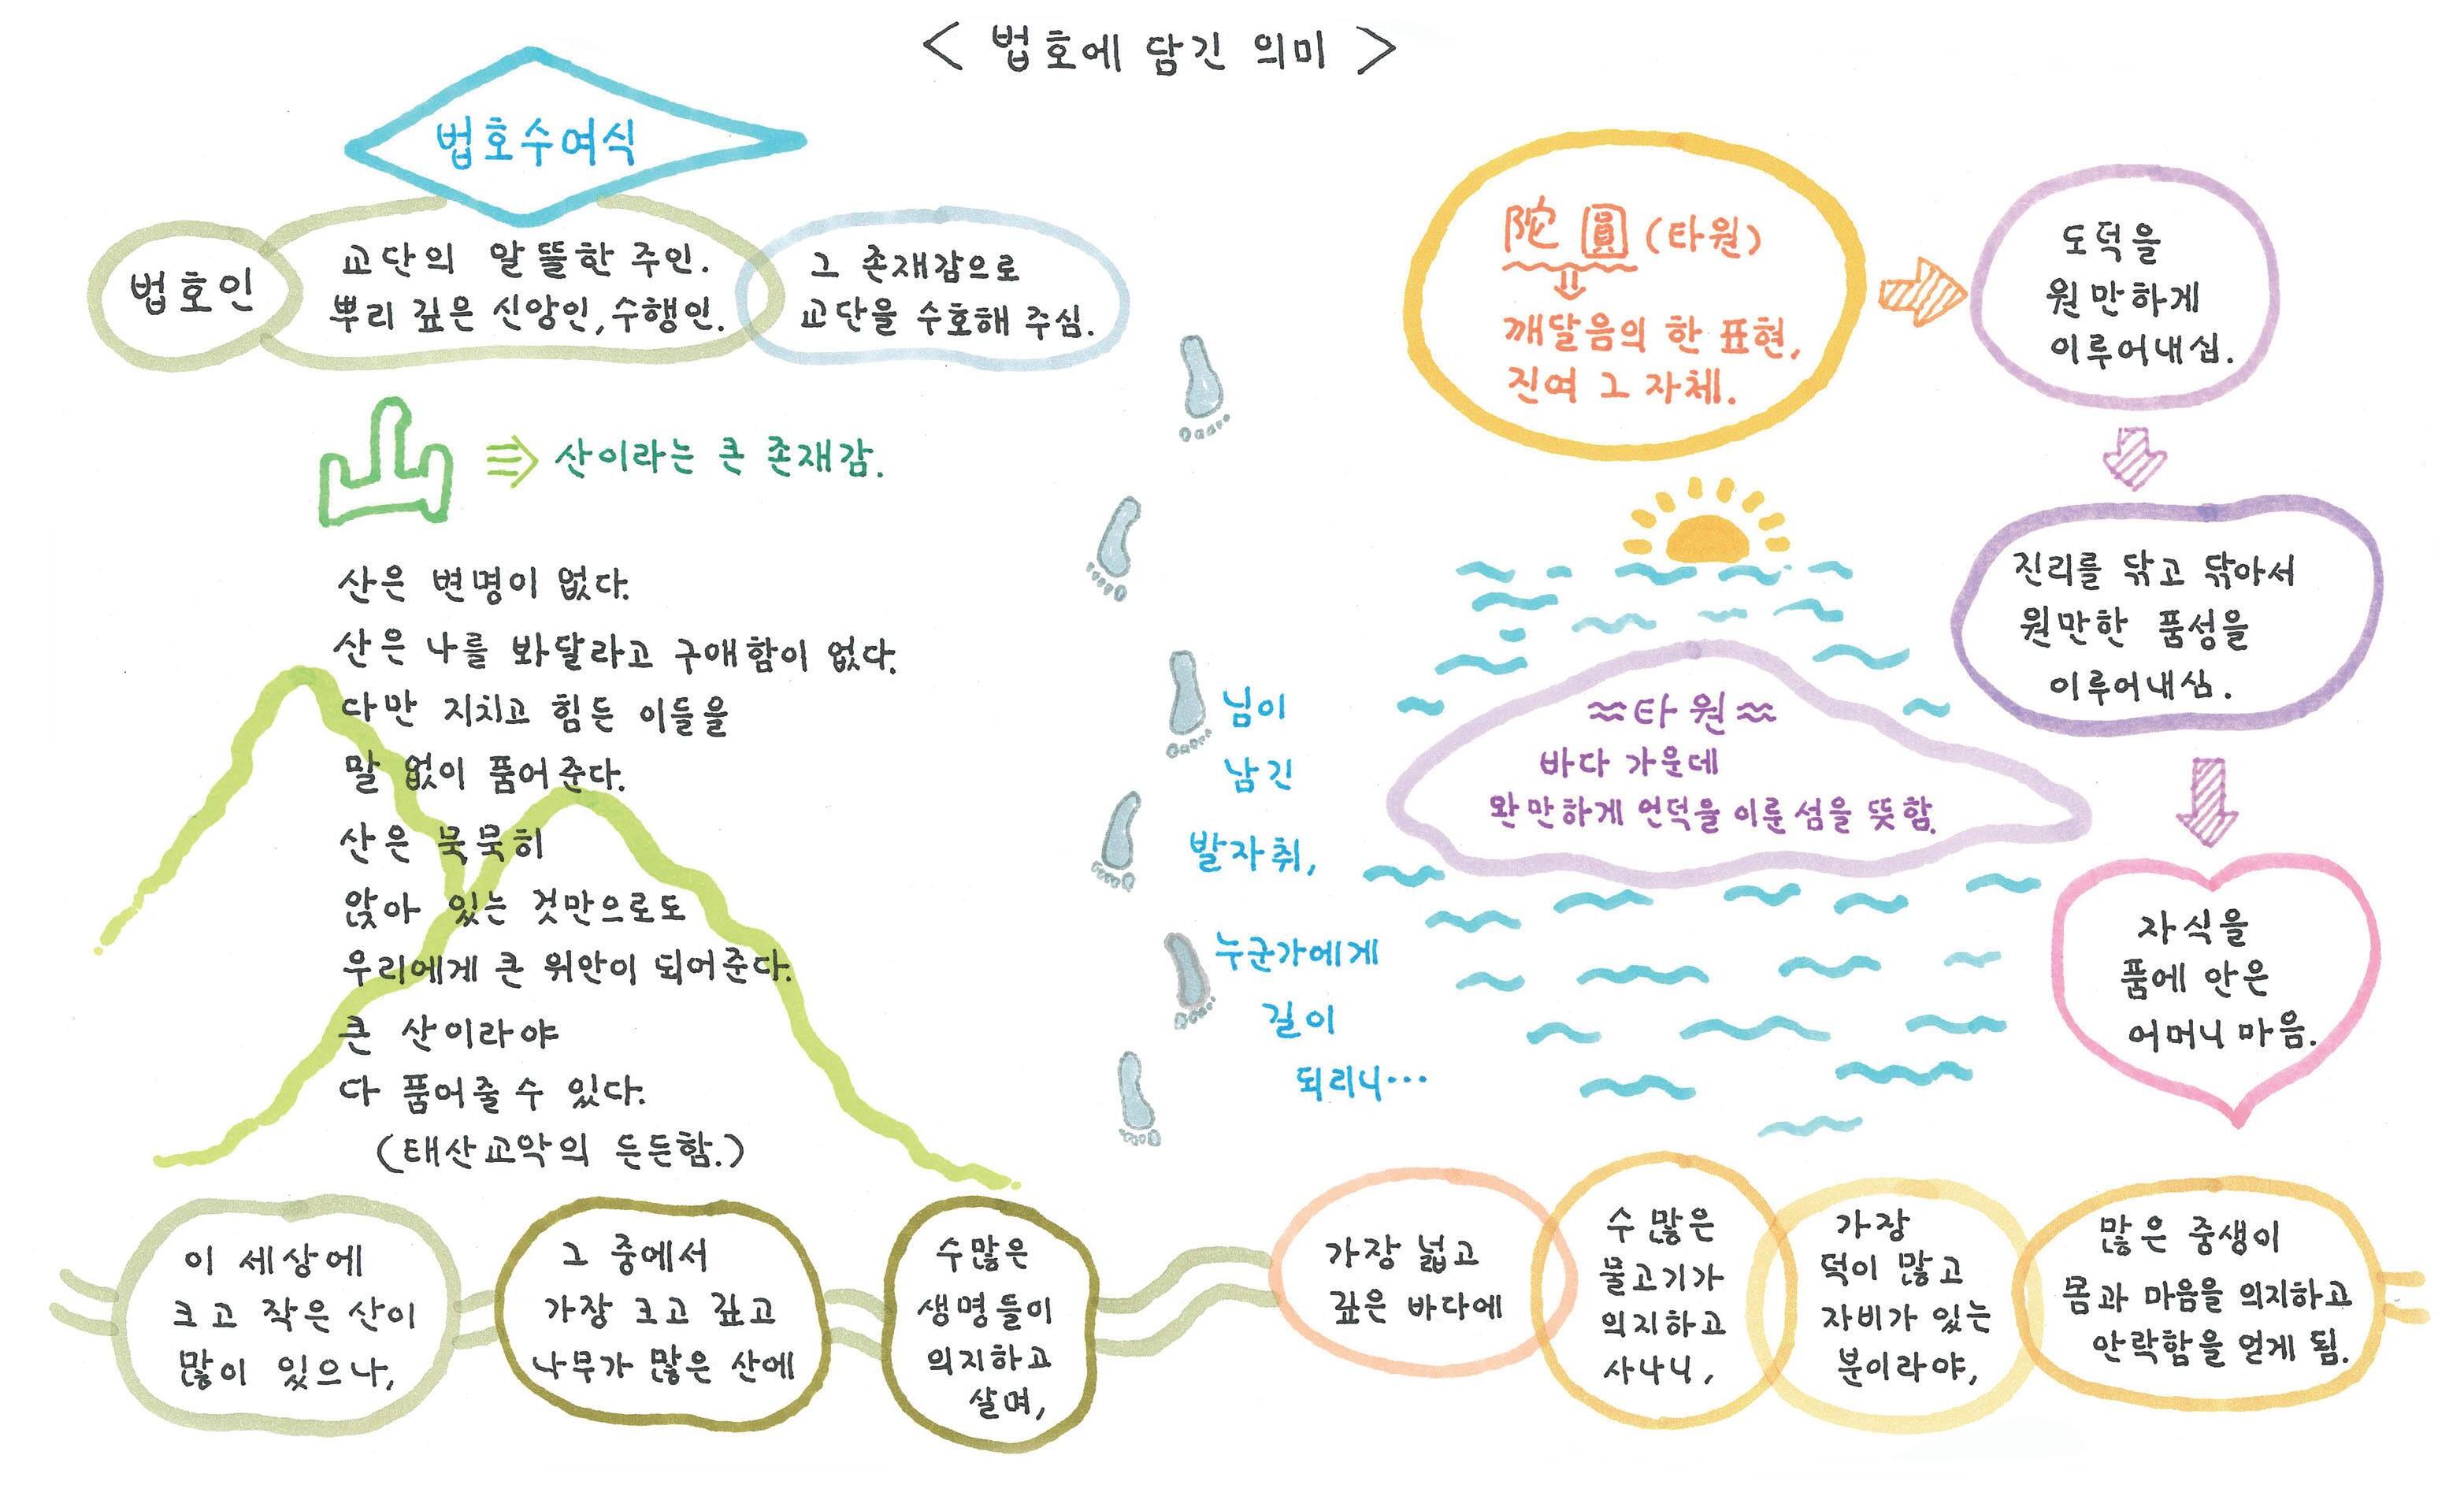 < 법호에 담긴 의미 >
법호수여식
법호인
교단의 알뜰한 주인.
뿌리 깊은 신앙인, 수행인.
그 존재감으로
교단을 수호해 주심.
山
산이라는 큰 존재감.
산은 변명이 없다.
산은 나를 봐달라고 구애함이 없다.
다만 지치고 힘든 이들을
말 없이 품어준다.
산은 묵묵히
앉아 있는 것만으로도
우리에게 큰 위안이 되어준다.
큰 산이라야
다 품어줄 수 있다.
(태산교악의 든든함.)
님이
남긴
발자취,
누군가에게
길이
되리니…
陀 圓 (타원)
깨달음의 한 표현,
진여 그 자체.
도덕을
원만하게
이루어내심.
진리를 닦고 닦아서
원만한 품성을
이루어내심.
자식을
품에 안은
어머니 마음.
≈타원≈
바다 가운데
완만하게 언덕을 이룬 섬을 뜻함.
이 세상에
크고 작은 산이
많이 있으나,
그 중에서
가장 크고 깊고
나무가 많은 산에
수많은
생명들이
의지하고
살며,
가장 넓고
깊은 바다에
수 많은
물고기가
의지하고
사나니,
가장
덕이 많고
자비가 있는
분이라야,
많은 중생이
몸과 마음을 의지하고
안락함을 얻게 됨.